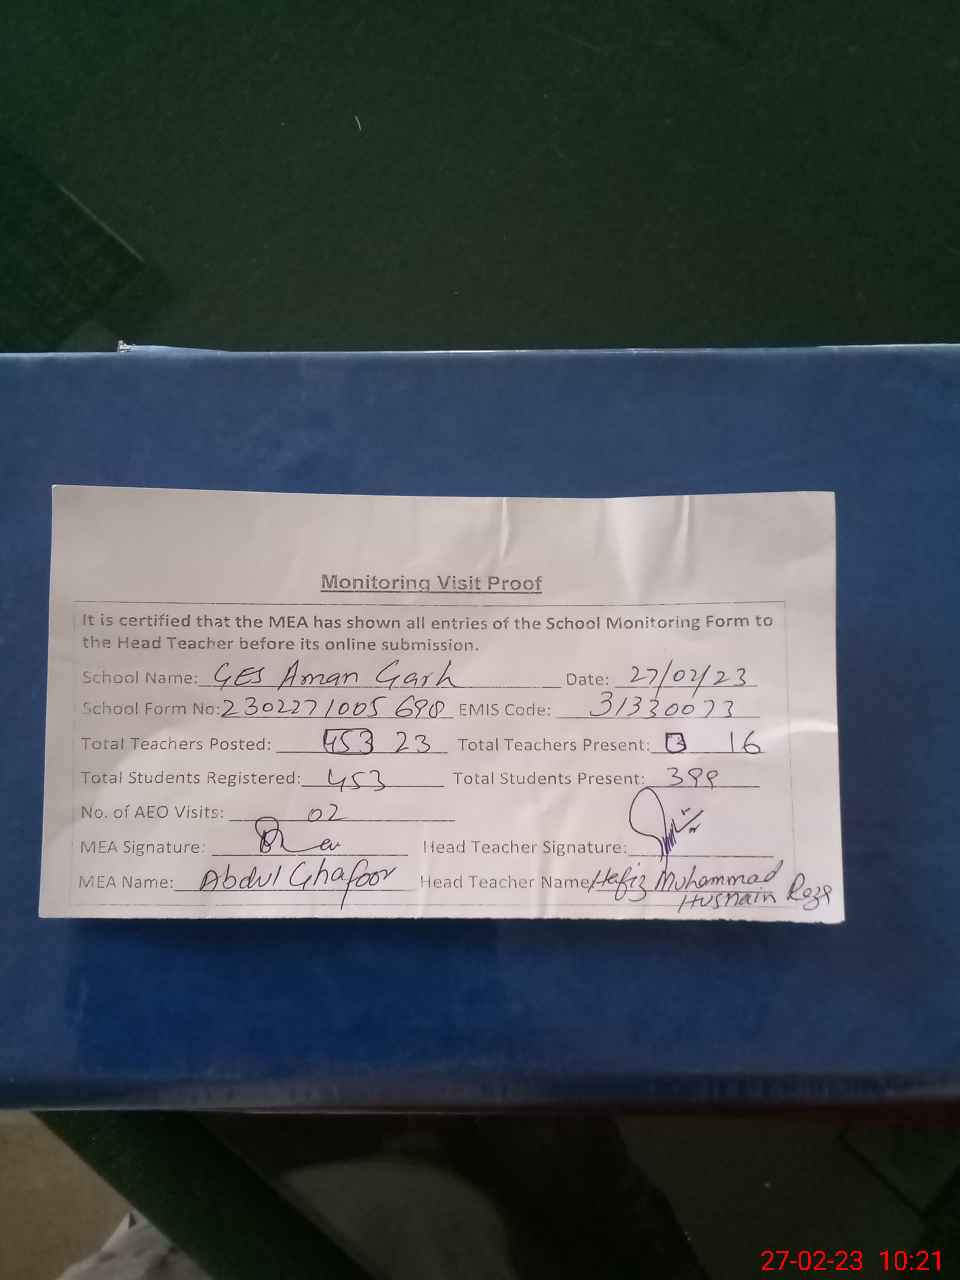 Monitoring Visit Proof
It is certified that the MEA has shown all entries of the School Monitoring Form to
the Head Teacher before its online submission.
School Name: GES Aman Garh Date: 27/02/23
School Form No: 2302271005698 EMIS Code: 31330073
Total Teachers Posted: 453 23 Total Teachers Present: 16
Total Students Registered: 453 Total Students Present: 399
No. of AEO Visits: 02
MEA Signature: Head Teacher Signature:
MEA Name: Abdul Ghafoor Head Teacher Name Hafiz Muhammad
Husnain Roza
27-02-23 10:21